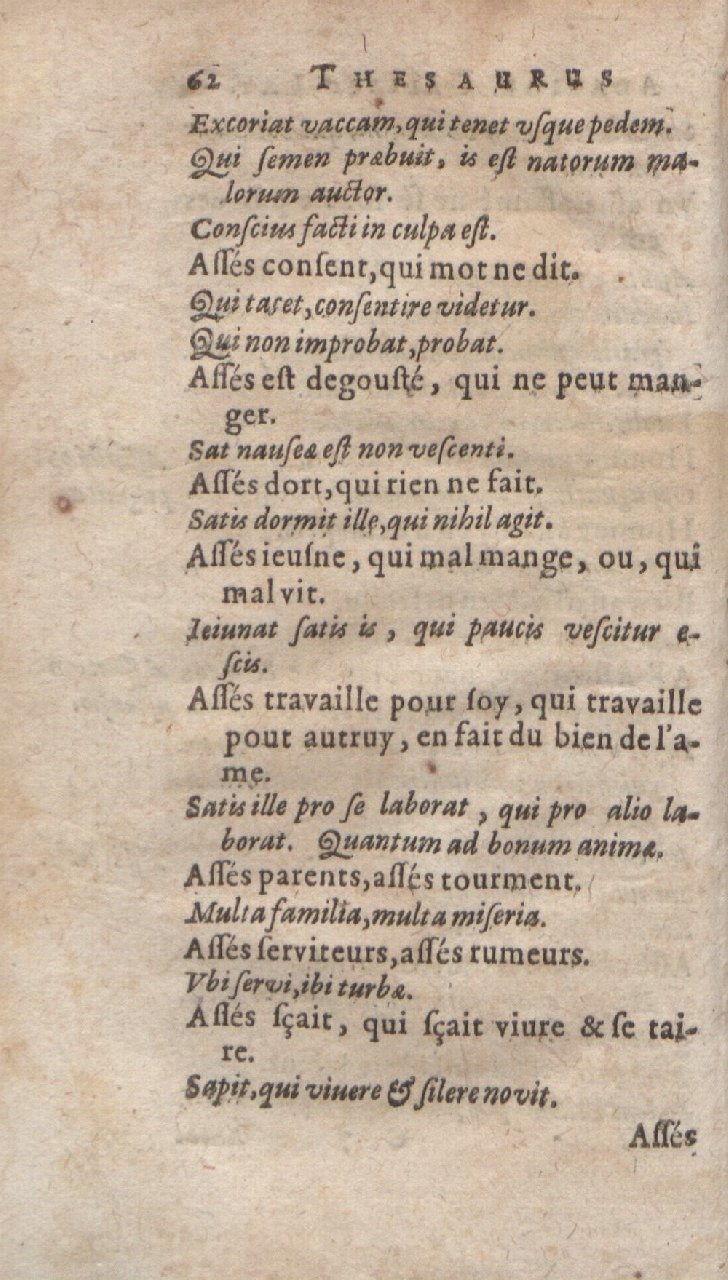 62 THESAURUS
Excoriat vaccam, qui tenet vſque pedem.
Qui ſemen præbuit, is eſt natorum ma-
lorum auctor.
Conſcius facti in culpa eſt.
Aſſés conſent, qui mot ne dit.
Qui tacet, conſentire videtur.
Qui non improbat, probat.
Aſſés eſt degouſté, qui ne peut man-
ger.
Sat nauſeæ eſt non veſcenti.
Aſſés dort, qui rien ne fait.
Satis dormit ille, qui nihil agit.
Aſſés ieuſne, qui mal mange, ou, qui
mal vit.
Ieiunat ſatis is, qui paucis veſcitur e-
ſcis.
Aſſés travaille pour ſoy, qui travaille
pout autruy, en fait du bien de l'a-
me.
Satis ille pro ſe laborat, qui pro alio la-
borat. Quantum ad bonum animæ.
Aſſés parents, aſſés tourment.
Multa familia, multa miſeria.
Aſſés ſerviteurs, aſſés rumeurs.
Vbi ſervi, ibi turbæ.
Aſſés ſçait, qui ſçait viure & ſe tai-
re.
Sapit, qui viuere & ſilere novit.
Aſſés